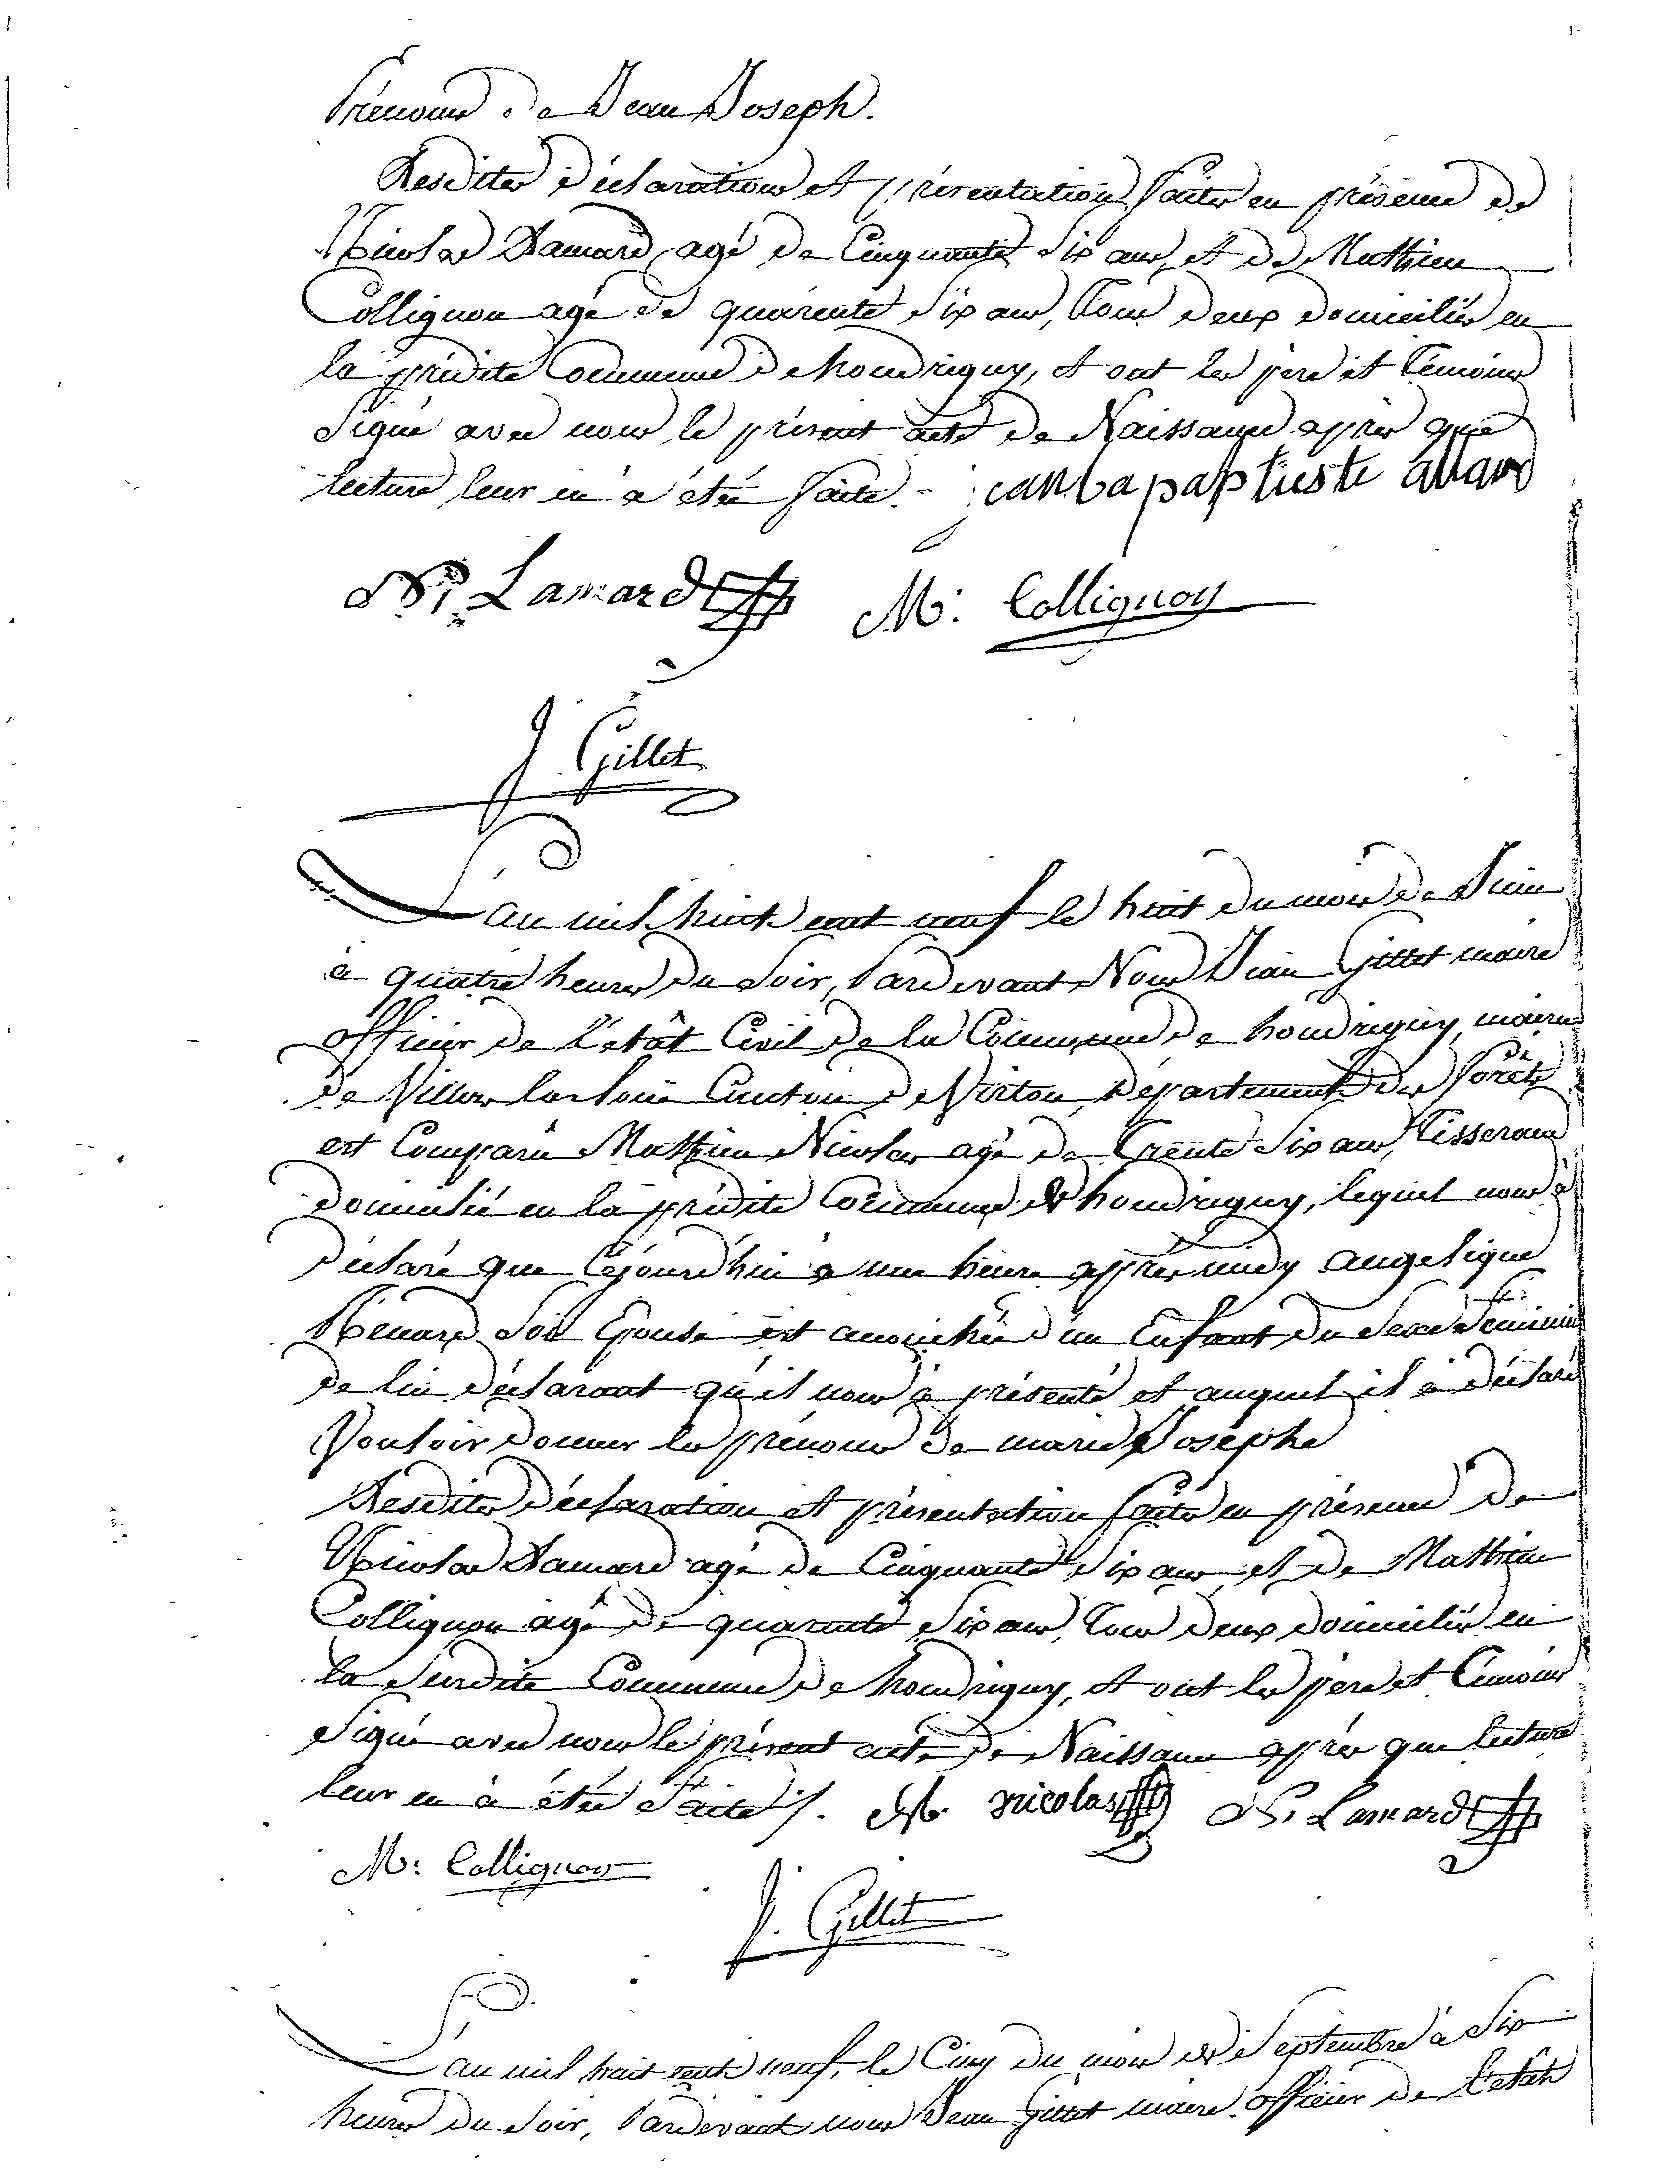 Prénoms de Jean Joseph.
Lesdites déclaration et présentation faites en présence de
Nicolas Lamard agé de Cinquante Six ans, et de Mathieu
Collignon agé de quarente Six ans, tous deux domiciliés en
la prédite Commune de houdrigny, et ont les pere et témoins
Signé avec nous le présent acte de Naissance après que
lecture leur en à étée faite. - jean bapaptieste allard
N. Lamard M: Collignon
J Gillet
L'an mil huit cent neuf le huit du mois de Juin
à quatre heures du Soir, Pardevant Nous Jean Gillet maire
officier de l'etât Civil de la Commune de houdrigny, mairie
de Villers la loüe Canton de Virton, département des Forêts
est Comparu Mathieu Nicolas agé de Trente Six ans, Tisserand
domicilié en la prédite Commune de houdrigny, lequel nous à
déclaré que Cejourd'hui à une heure après midy angelique
Renard Son Epouse est accouchée d'un Enfant du Sexe Féminin
de lui déclarant qu'il nous à présenté et auquel il à déclaré
Vouloir donner les prénoms de marie Josephe
Lesdites déclaration et présentation faites en présence de
Nicolas Lamard agé de Cinquante Six ans et de Mathieu
Collignon agé de quarante Six ans, tous deux domiciliés en
la Susdite Commune de houdrigny, et ont les pere et témoins
Signé avec nous le présent acte de Naissance après que lecture
leur en à étée Faite /. M. nicolas N. Lamard
M: Collignon
J. Gillet
L'an mil huit cent neuf, le Cinq du mois de Septembre à Six
heures du Soir, Pardevant nous Jean Gillet maire officier de l'etat